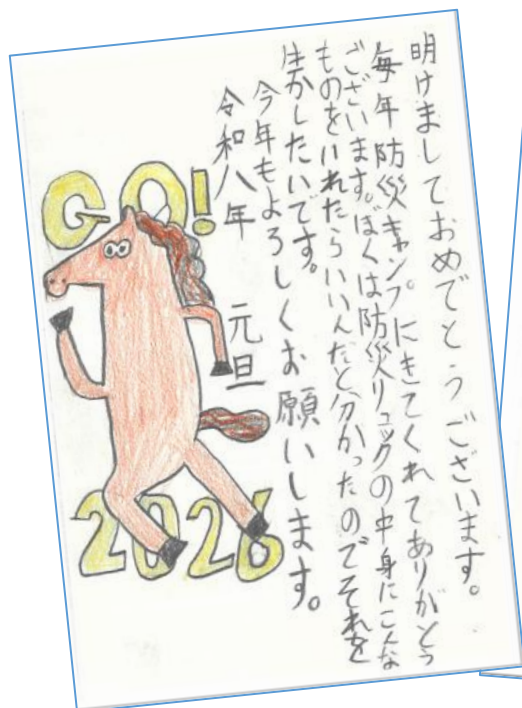 明けましておめでとうございます。
毎年防災キャンプにきてくれてありがとう
ございます。ぼくは防災リュックの中身にこんな
ものをいれたらいいんだと分かったのでそれを
生かしたいです。
今年もよろしくお願いします。
令和八年 元旦
GO!
2026